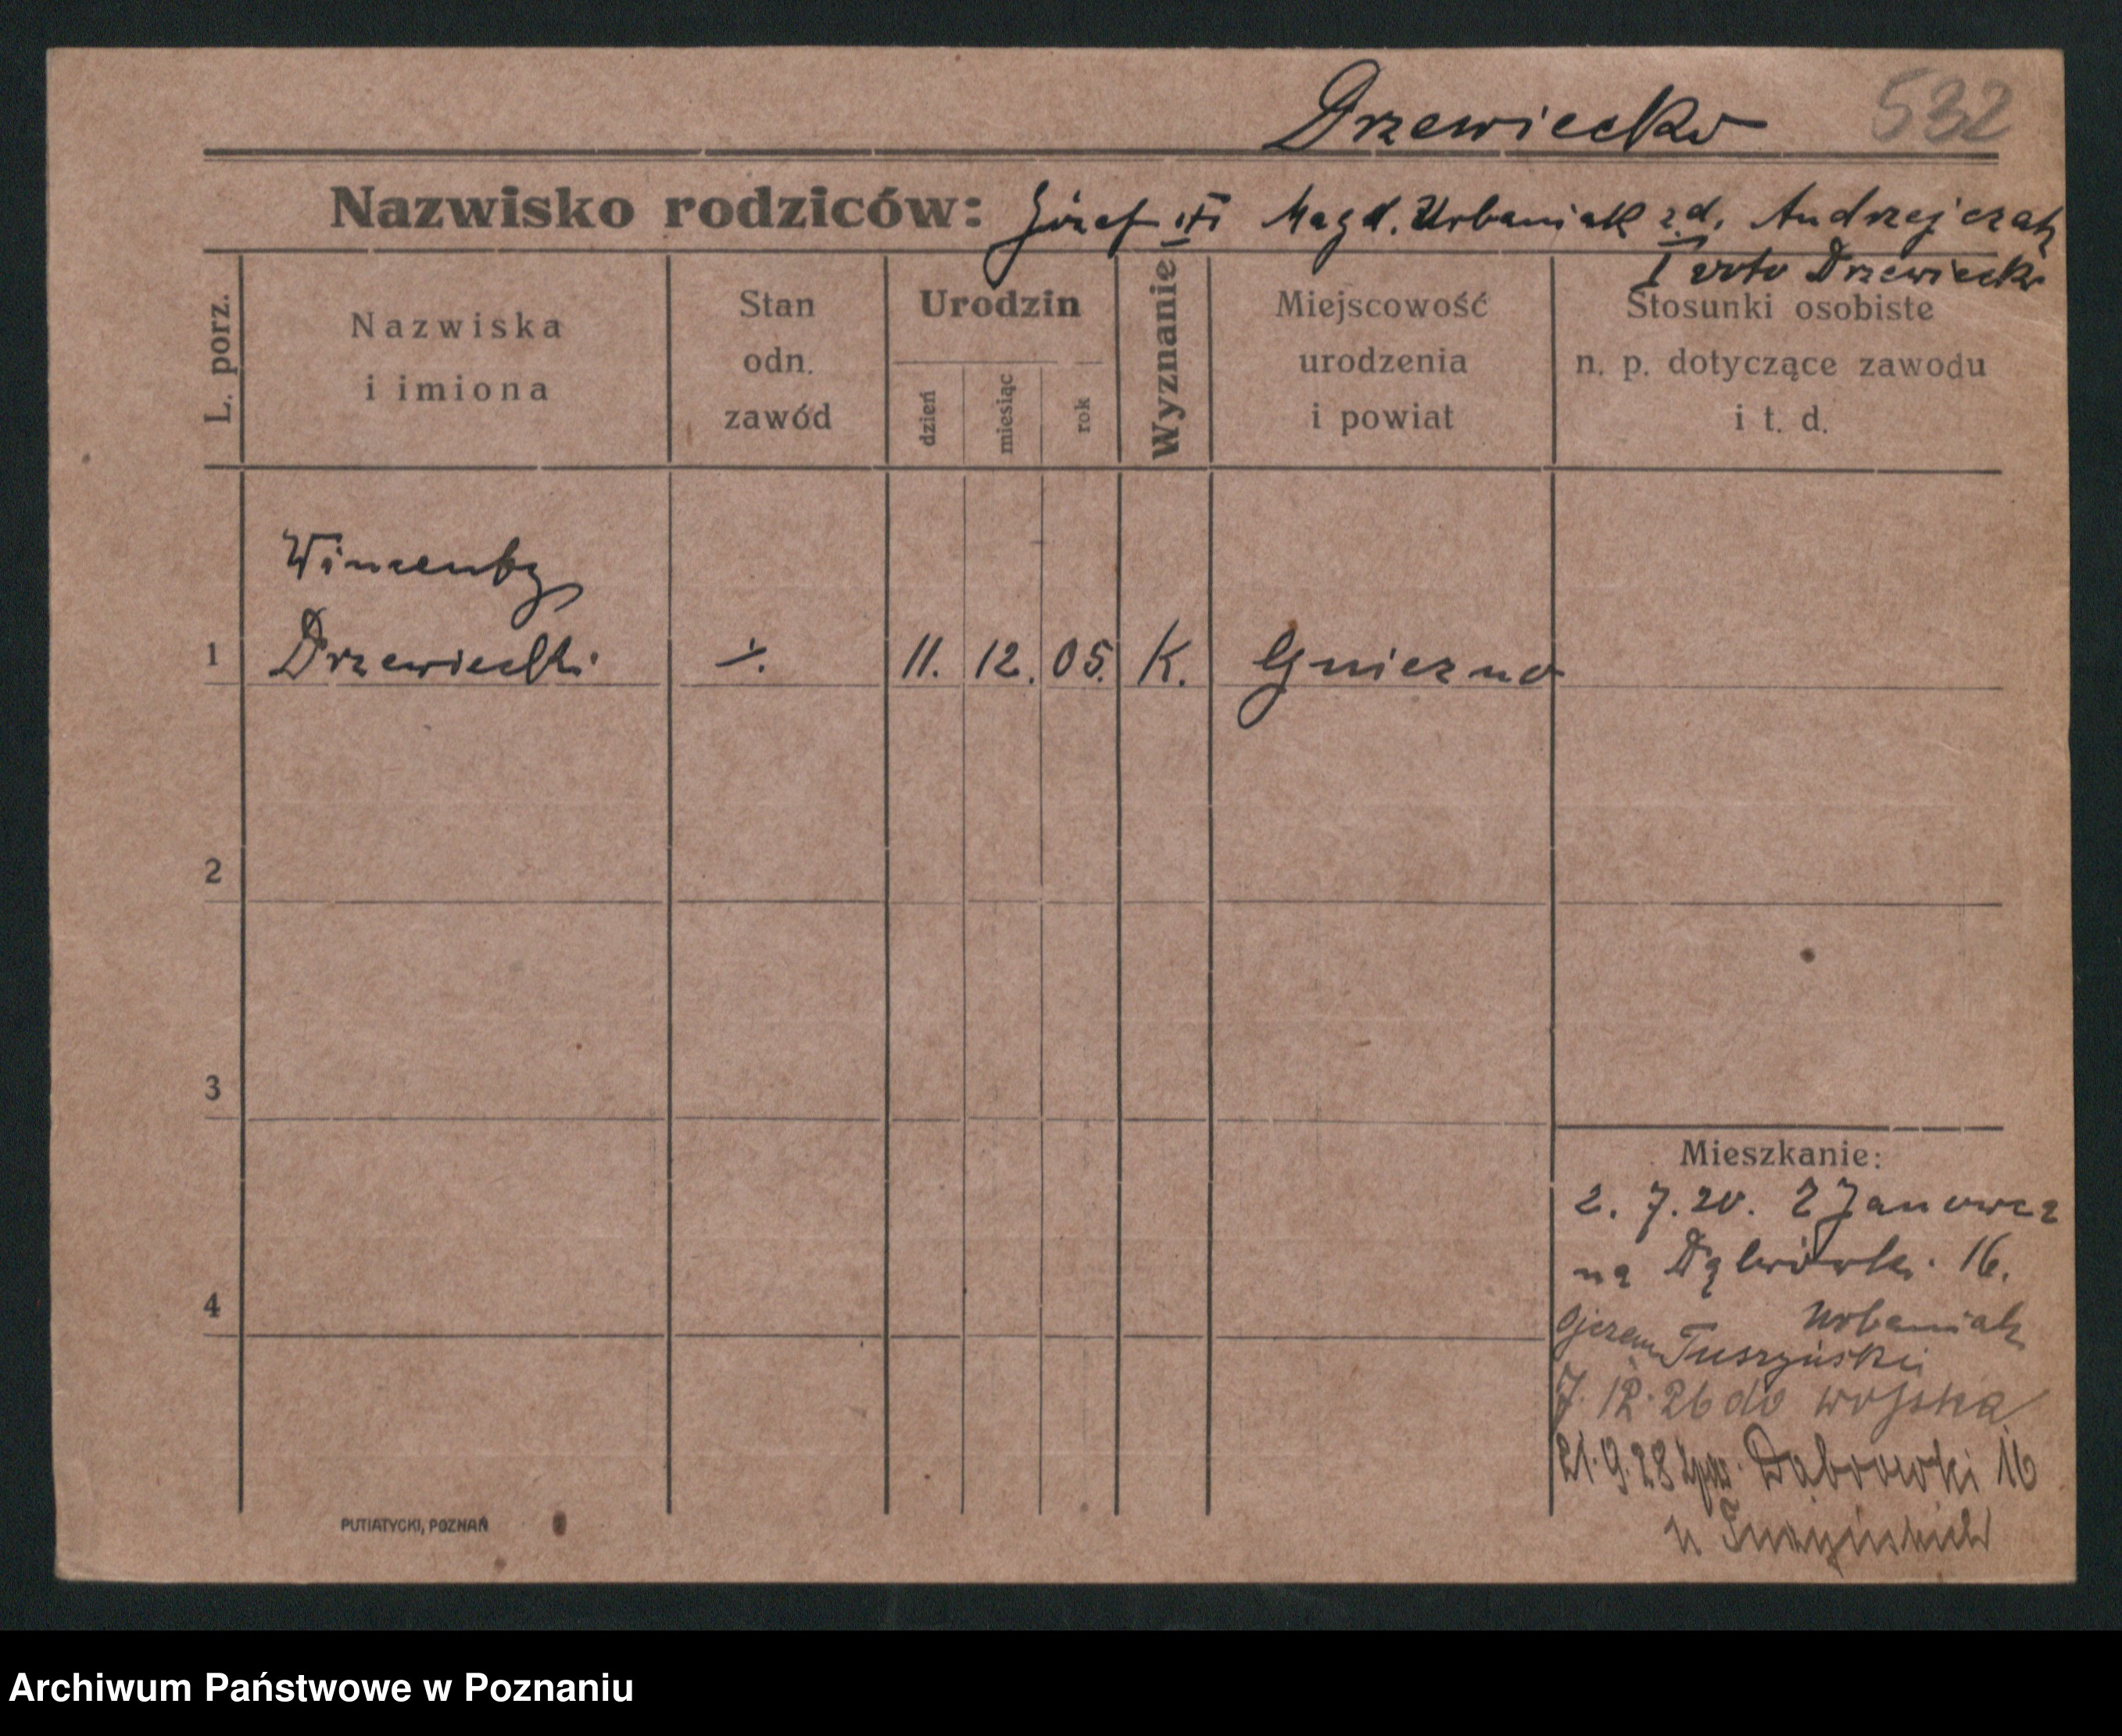 Drzewiecko 532
Nazwisko rodziców: Józef i Magd. Urbaniak z.d. Andrzejczak
I voto Drzewiecki
L. porz.
Nazwiska
i imiona
Stan
odn.
zawód
Urodzin
dzień
miesiąc
rok
Wyznanie
Miejscowość
urodzenia
i powiat
Stosunki osobiste
n. p. dotyczące zawodu
i t. d.
Wincenty
1 Drzewiecki ·/. 11. 12. 05. K. Gniezno
2
3
4
Mieszkanie:
2. 7. 20. Z Janowca
na Dąbrówki 16.
Urbaniak
Ojczem Tuszyński
7. 12. 26 do wojska
21. 9. 28 Dąbrowki 16
u Tuszyńskich
PUTIATYCKI, POZNAŃ
Archiwum Państwowe w Poznaniu